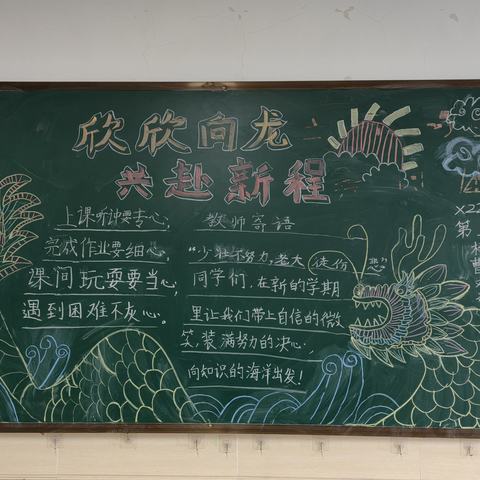 欣欣向龙
共赴新程
上课听讲要专心，
完成作业要细心，
课间玩耍要当心，
遇到困难不灰心。
教师寄语
“少壮不努力，老大徒伤悲”
同学们，在新的学期
里让我们带上自信的微
笑，装满努力的决心，
向知识的海洋出发！